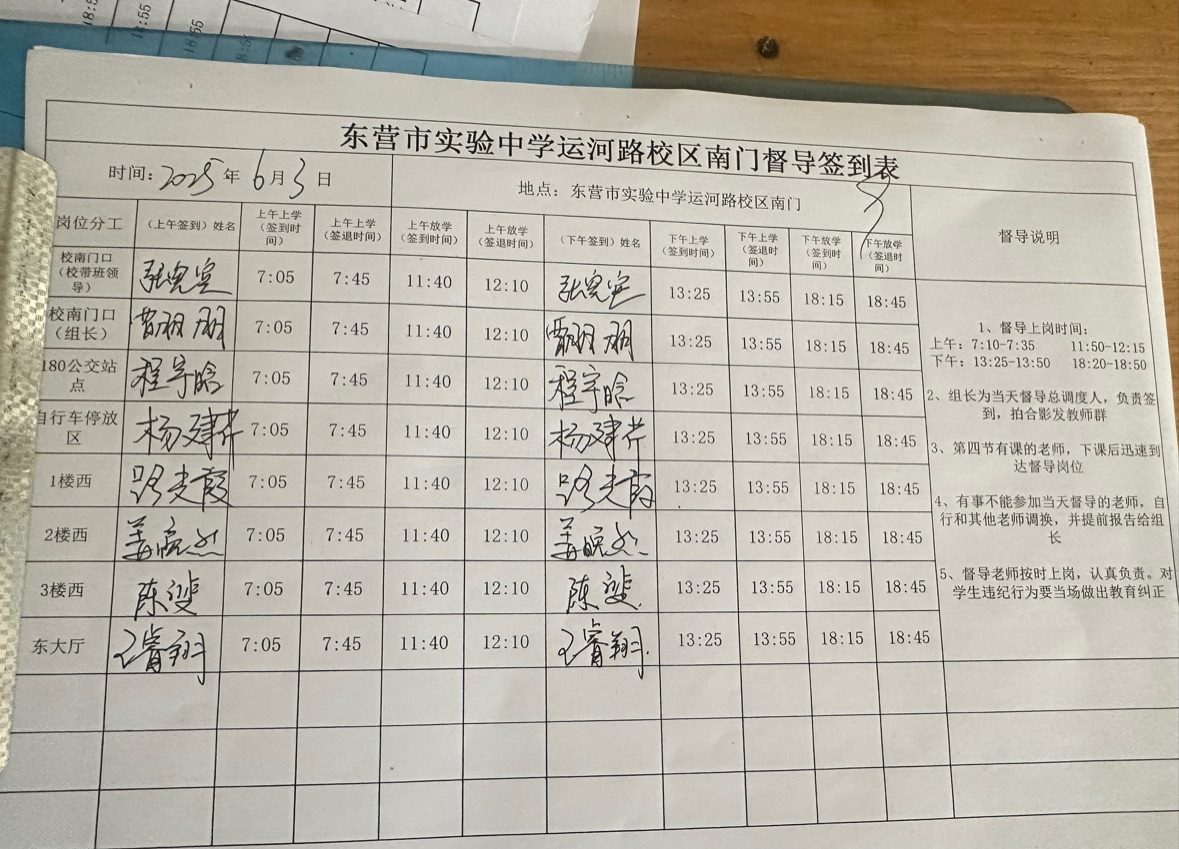 18:55
18:55
东营市实验中学运河路校区南门督导签到表
时间:2025年6月3日 地点:东营市实验中学运河路校区南门
岗位分工 (上午签到)姓名 上午上学(签到时间) 上午上学(签退时间) 上午放学(签到时间) 上午放学(签退时间) (下午签到)姓名 下午上学(签到时间) 下午上学(签退时间) 下午放学(签到时间) 下午放学(签退时间) 督导说明
校南门口(校带班领导) 7:05 7:45 11:40 12:10 13:25 13:55 18:15 18:45
校南门口(组长) 7:05 7:45 11:40 12:10 13:25 13:55 18:15 18:45
180公交站点 程宇晗 7:05 7:45 11:40 12:10 程宇晗 13:25 13:55 18:15 18:45
自行车停放区 杨建芹 7:05 7:45 11:40 12:10 杨建芹 13:25 13:55 18:15 18:45
1楼西 路支霞 7:05 7:45 11:40 12:10 路支霞 13:25 13:55 18:15 18:45
2楼西 7:05 7:45 11:40 12:10 13:25 13:55 18:15 18:45
3楼西 陈斐 7:05 7:45 11:40 12:10 陈斐 13:25 13:55 18:15 18:45
东大厅 王睿翔 7:05 7:45 11:40 12:10 王睿翔 13:25 13:55 18:15 18:45
1、督导上岗时间:
上午:7:10-7:35 11:50-12:15
下午:13:25-13:50 18:20-18:50
2、组长为当天督导总调度人,负责签
到,拍合影发教师群
3、第四节有课的老师,下课后迅速到
达督导岗位
4、有事不能参加当天督导的老师,自
行和其他老师调换,并提前报告给组
长
5、督导老师按时上岗,认真负责。对
学生违纪行为要当场做出教育纠正